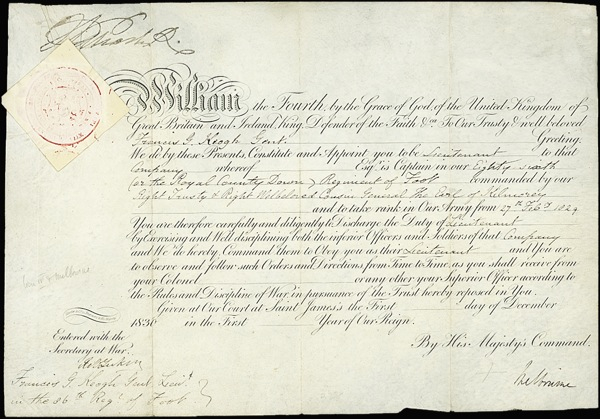 William the Fourth, by the Grace of God, of the United Kingdom of
Great Britain and Ireland, King, Defender of the Faith &ca To Our Trusty & well beloved
Francis G. Keogh Gent. Greeting.
We do by these Presents, Constitute and Appoint you to be Lieutenant to that
Company whereof Esqr. is Captain in our Eighty sixth
(or the Royal County Down) Regiment of Foot commanded by our
Right Trusty & Right Welbeloved Cousin General The Earl of Kilmorey
and to take rank in Our Army from 27th Feby. 1829
You are therefore carefully and diligently to Discharge the Duty of Lieutenant
by Exercising and Well disciplining both the inferior Officers and Soldiers of that Company
and We do hereby Command them to Obey you as their Lieutenant and You are
to observe and follow such Orders and Directions from Time to Time, as you shall receive from
your Colonel or any other your Superior Officer according to
the Rules and Discipline of War, in pursuance of the Trust hereby reposed in You.
Given at Our Court at Saint James's the First day of December
1830 in the First Year of Our Reign.
Entered with the
Secretary at War.
By His Majesty's Command.
Melbourne
Francis G. Keogh Gent. Lieut.
in the 86th Regt. of Foot